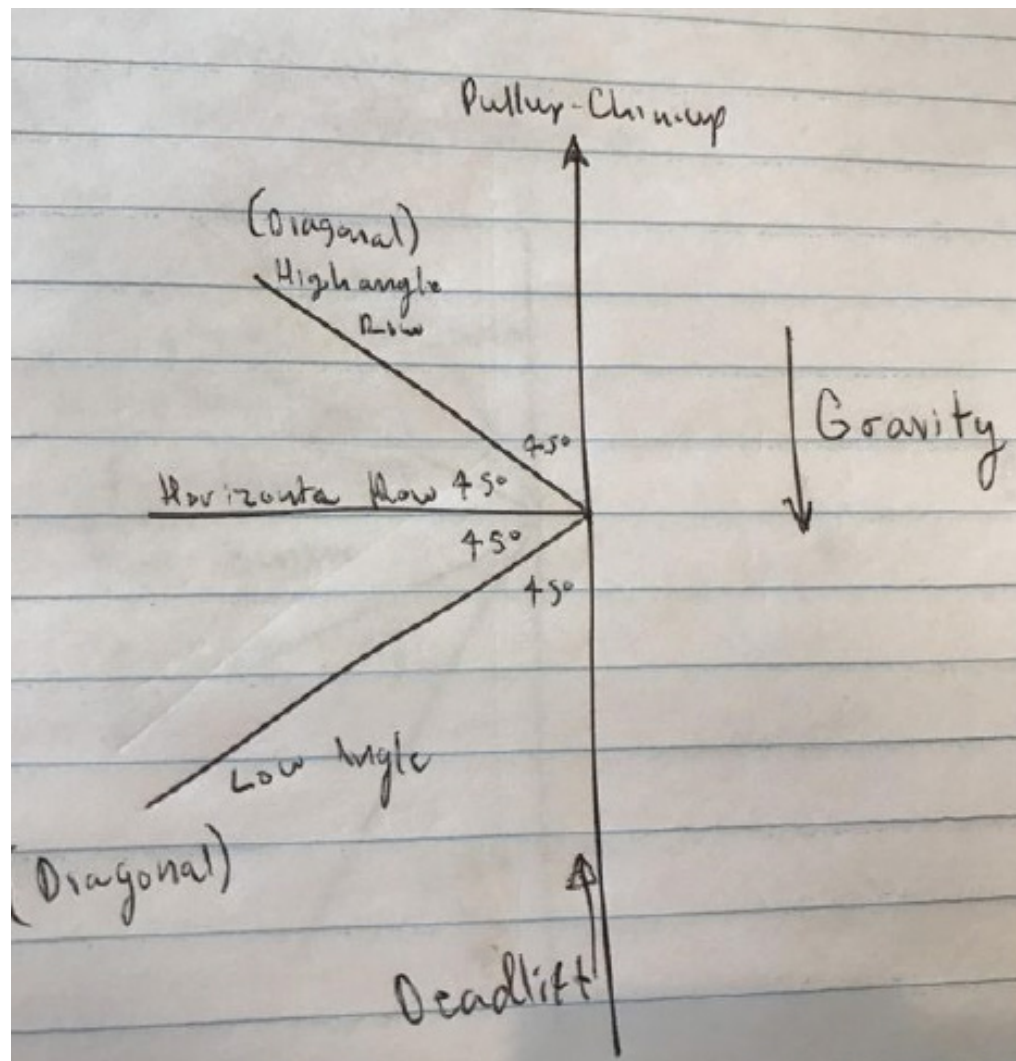 Pullup-Chin-up
(Diagonal)
High angle
Row
45°
Horizonta Row 45°
45°
45°
Gravity
Low Angle
(Diagonal)
Deadlift